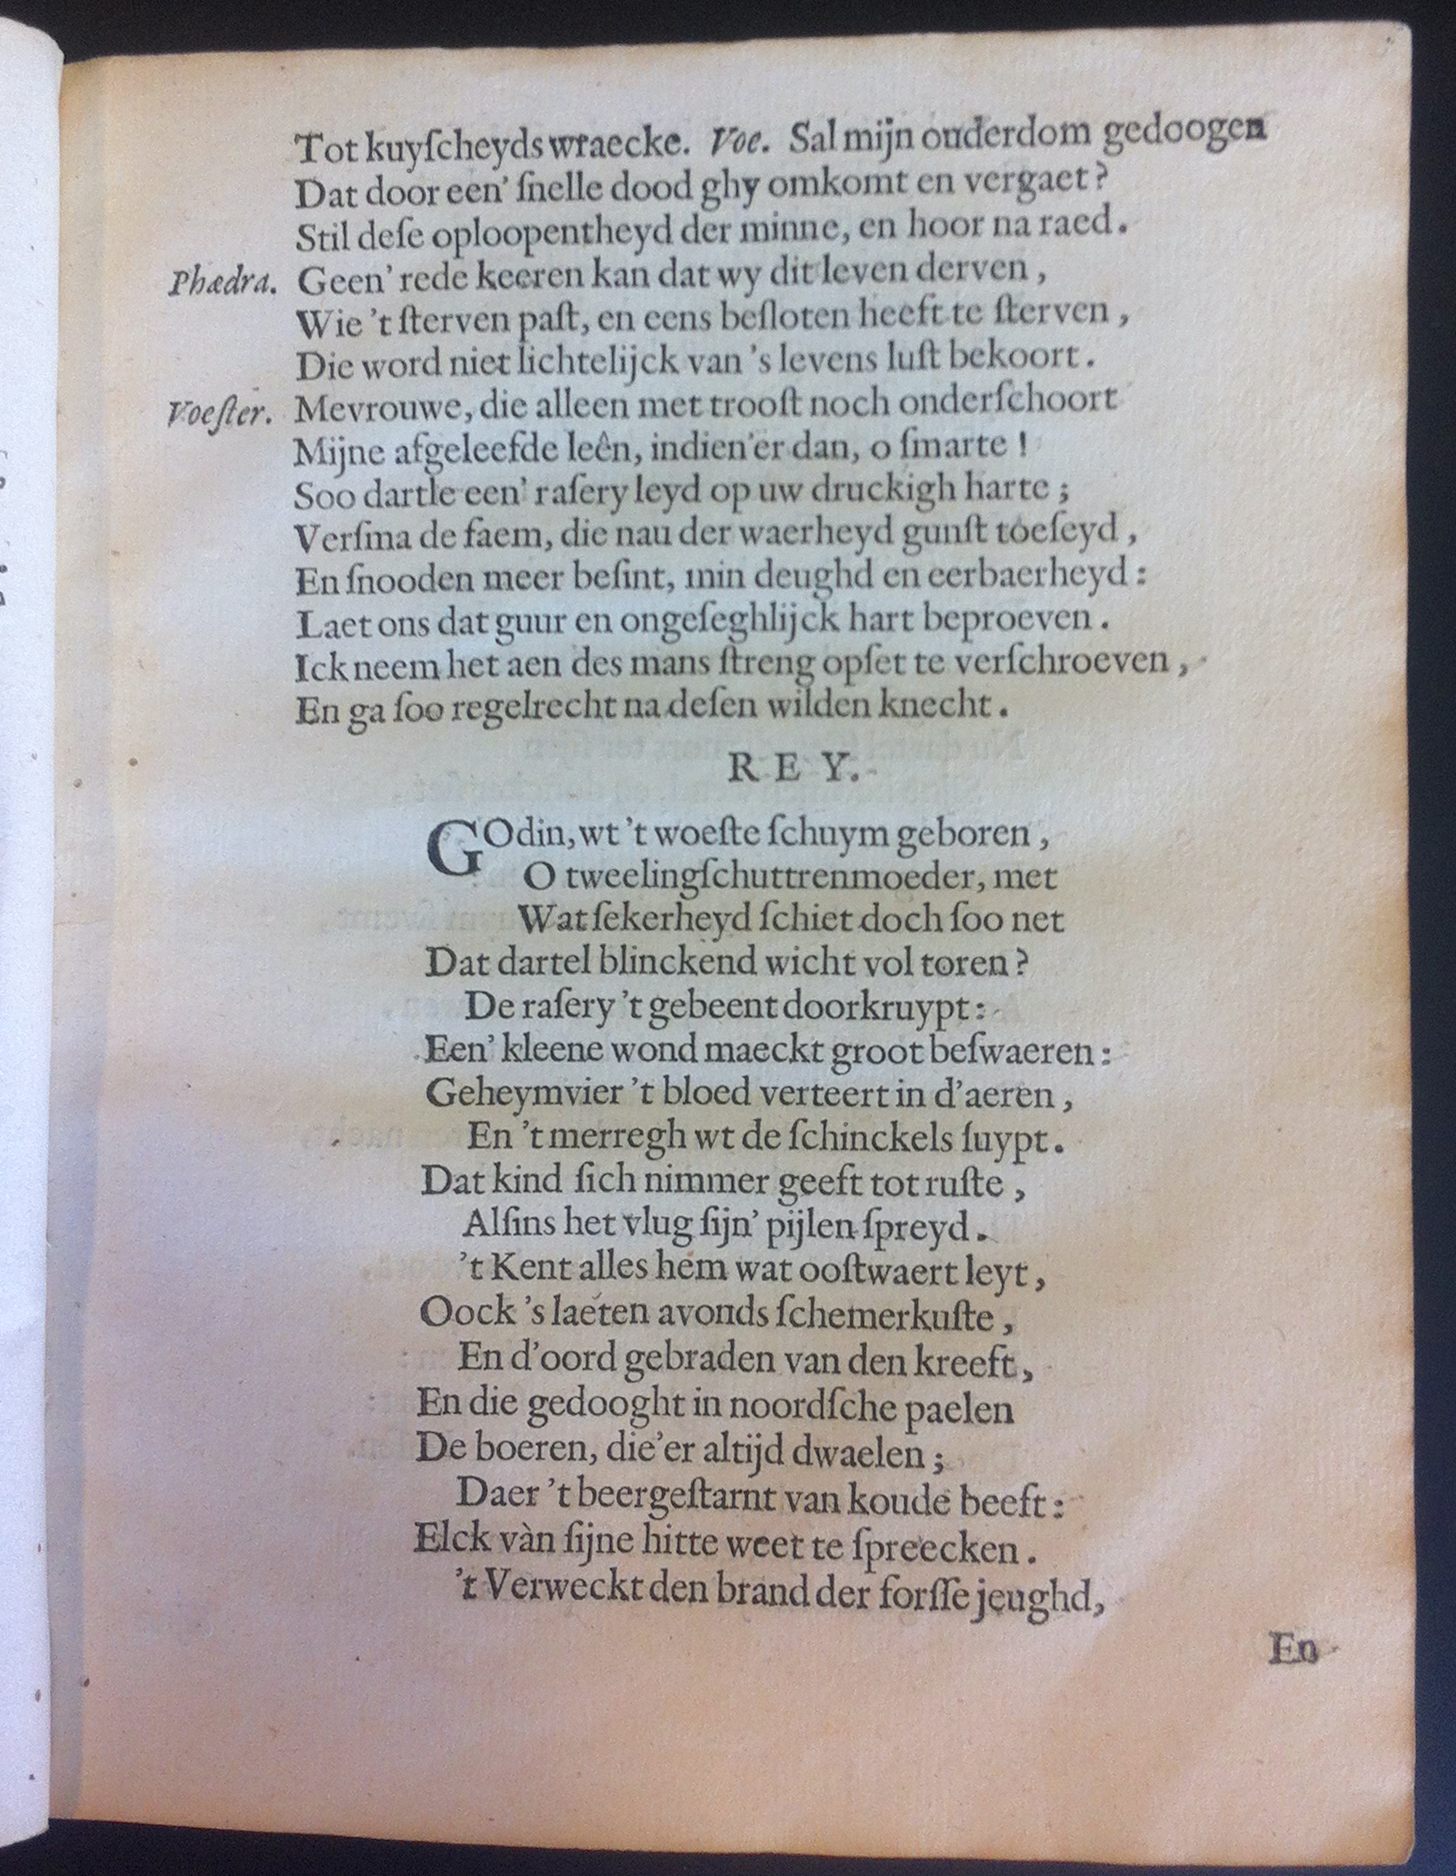 Tot kuyſcheyds wraecke. Voe. Sal mijn ouderdom gedoogen
Dat door een' ſnelle dood ghy omkomt en vergaet?
Stil deſe oploopentheyd der minne, en hoor na raed.
Phædra. Geen' rede keeren kan dat wy dit leven derven,
Wie 't ſterven paſt, en eens beſloten heeft te ſterven,
Die word niet lichtelijck van 's levens luſt bekoort.
Voeſter. Mevrouwe, die alleen met trooſt noch onderſchoort
Mijne afgeleefde leên, indien'er dan, o ſmarte!
Soo dartle een' raſery leyd op uw druckigh harte;
Verſma de faem, die nau der waerheyd gunſt toeſeyd,
En ſnooden meer beſint, min deughd en eerbaerheyd:
Laet ons dat guur en ongeſeghlijck hart beproeven.
Ick neem het aen des mans ſtreng opſet te verſchroeven,
En ga ſoo regelrecht na deſen wilden knecht.
REY.
GOdin, wt 't woeſte ſchuym geboren,
O tweelingſchuttrenmoeder, met
Wat ſekerheyd ſchiet doch ſoo net
Dat dartel blinckend wicht vol toren?
De raſery 't gebeent doorkruypt:
Een' kleene wond maeckt groot beſwaeren:
Geheymvier 't bloed verteert in d'aeren,
En 't merregh wt de ſchinckels ſuypt.
Dat kind ſich nimmer geeft tot ruſte,
Alſins het vlug ſijn' pijlen ſpreyd.
't Kent alles hem wat ooſtwaert leyt,
Oock 's laeten avonds ſchemerkuſte,
En d'oord gebraden van den kreeft,
En die gedooght in noordſche paelen
De boeren, die'er altijd dwaelen;
Daer 't beergeſtarnt van koude beeft:
Elck vàn ſijne hitte weet te ſpreecken.
't Verweckt den brand der forſſe jeughd,
En